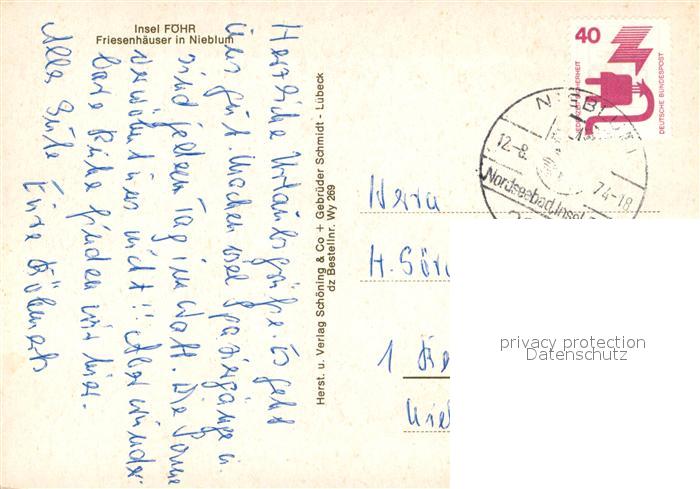 Insel FÖHR
Friesenhäuser in Nieblum
Herzliche Urlaubsgrüße. Es geht
uns gut. Machen viel Spaziergänge u.
sind jeden Tag im Watt. Die Sonne
verwöhnt uns nicht!! Aber wunder
bare Ruhe finden wir hier.
Alles Gute
Eure
Herst. u. Verlag Schöning & Co + Gebrüder Schmidt - Lübeck
dz Bestellnr. Wy 269
40
DEUTSCHE BUNDESPOST
12.-8.
74-18
Nordseebad Insel
Herrn
H.
1
privacy protection
Datenschutz